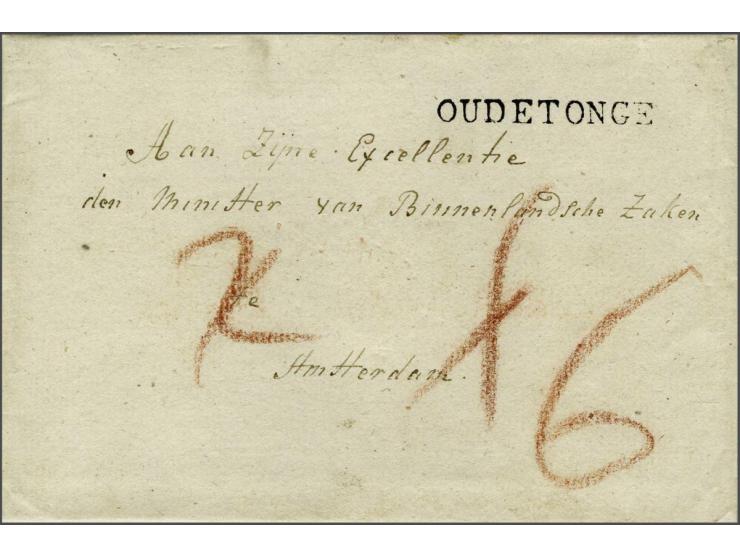 OUDETONGE
Aan Zijne Excellentie
den Minister van Binnenlandsche Zaken
te
Amsterdam.
6